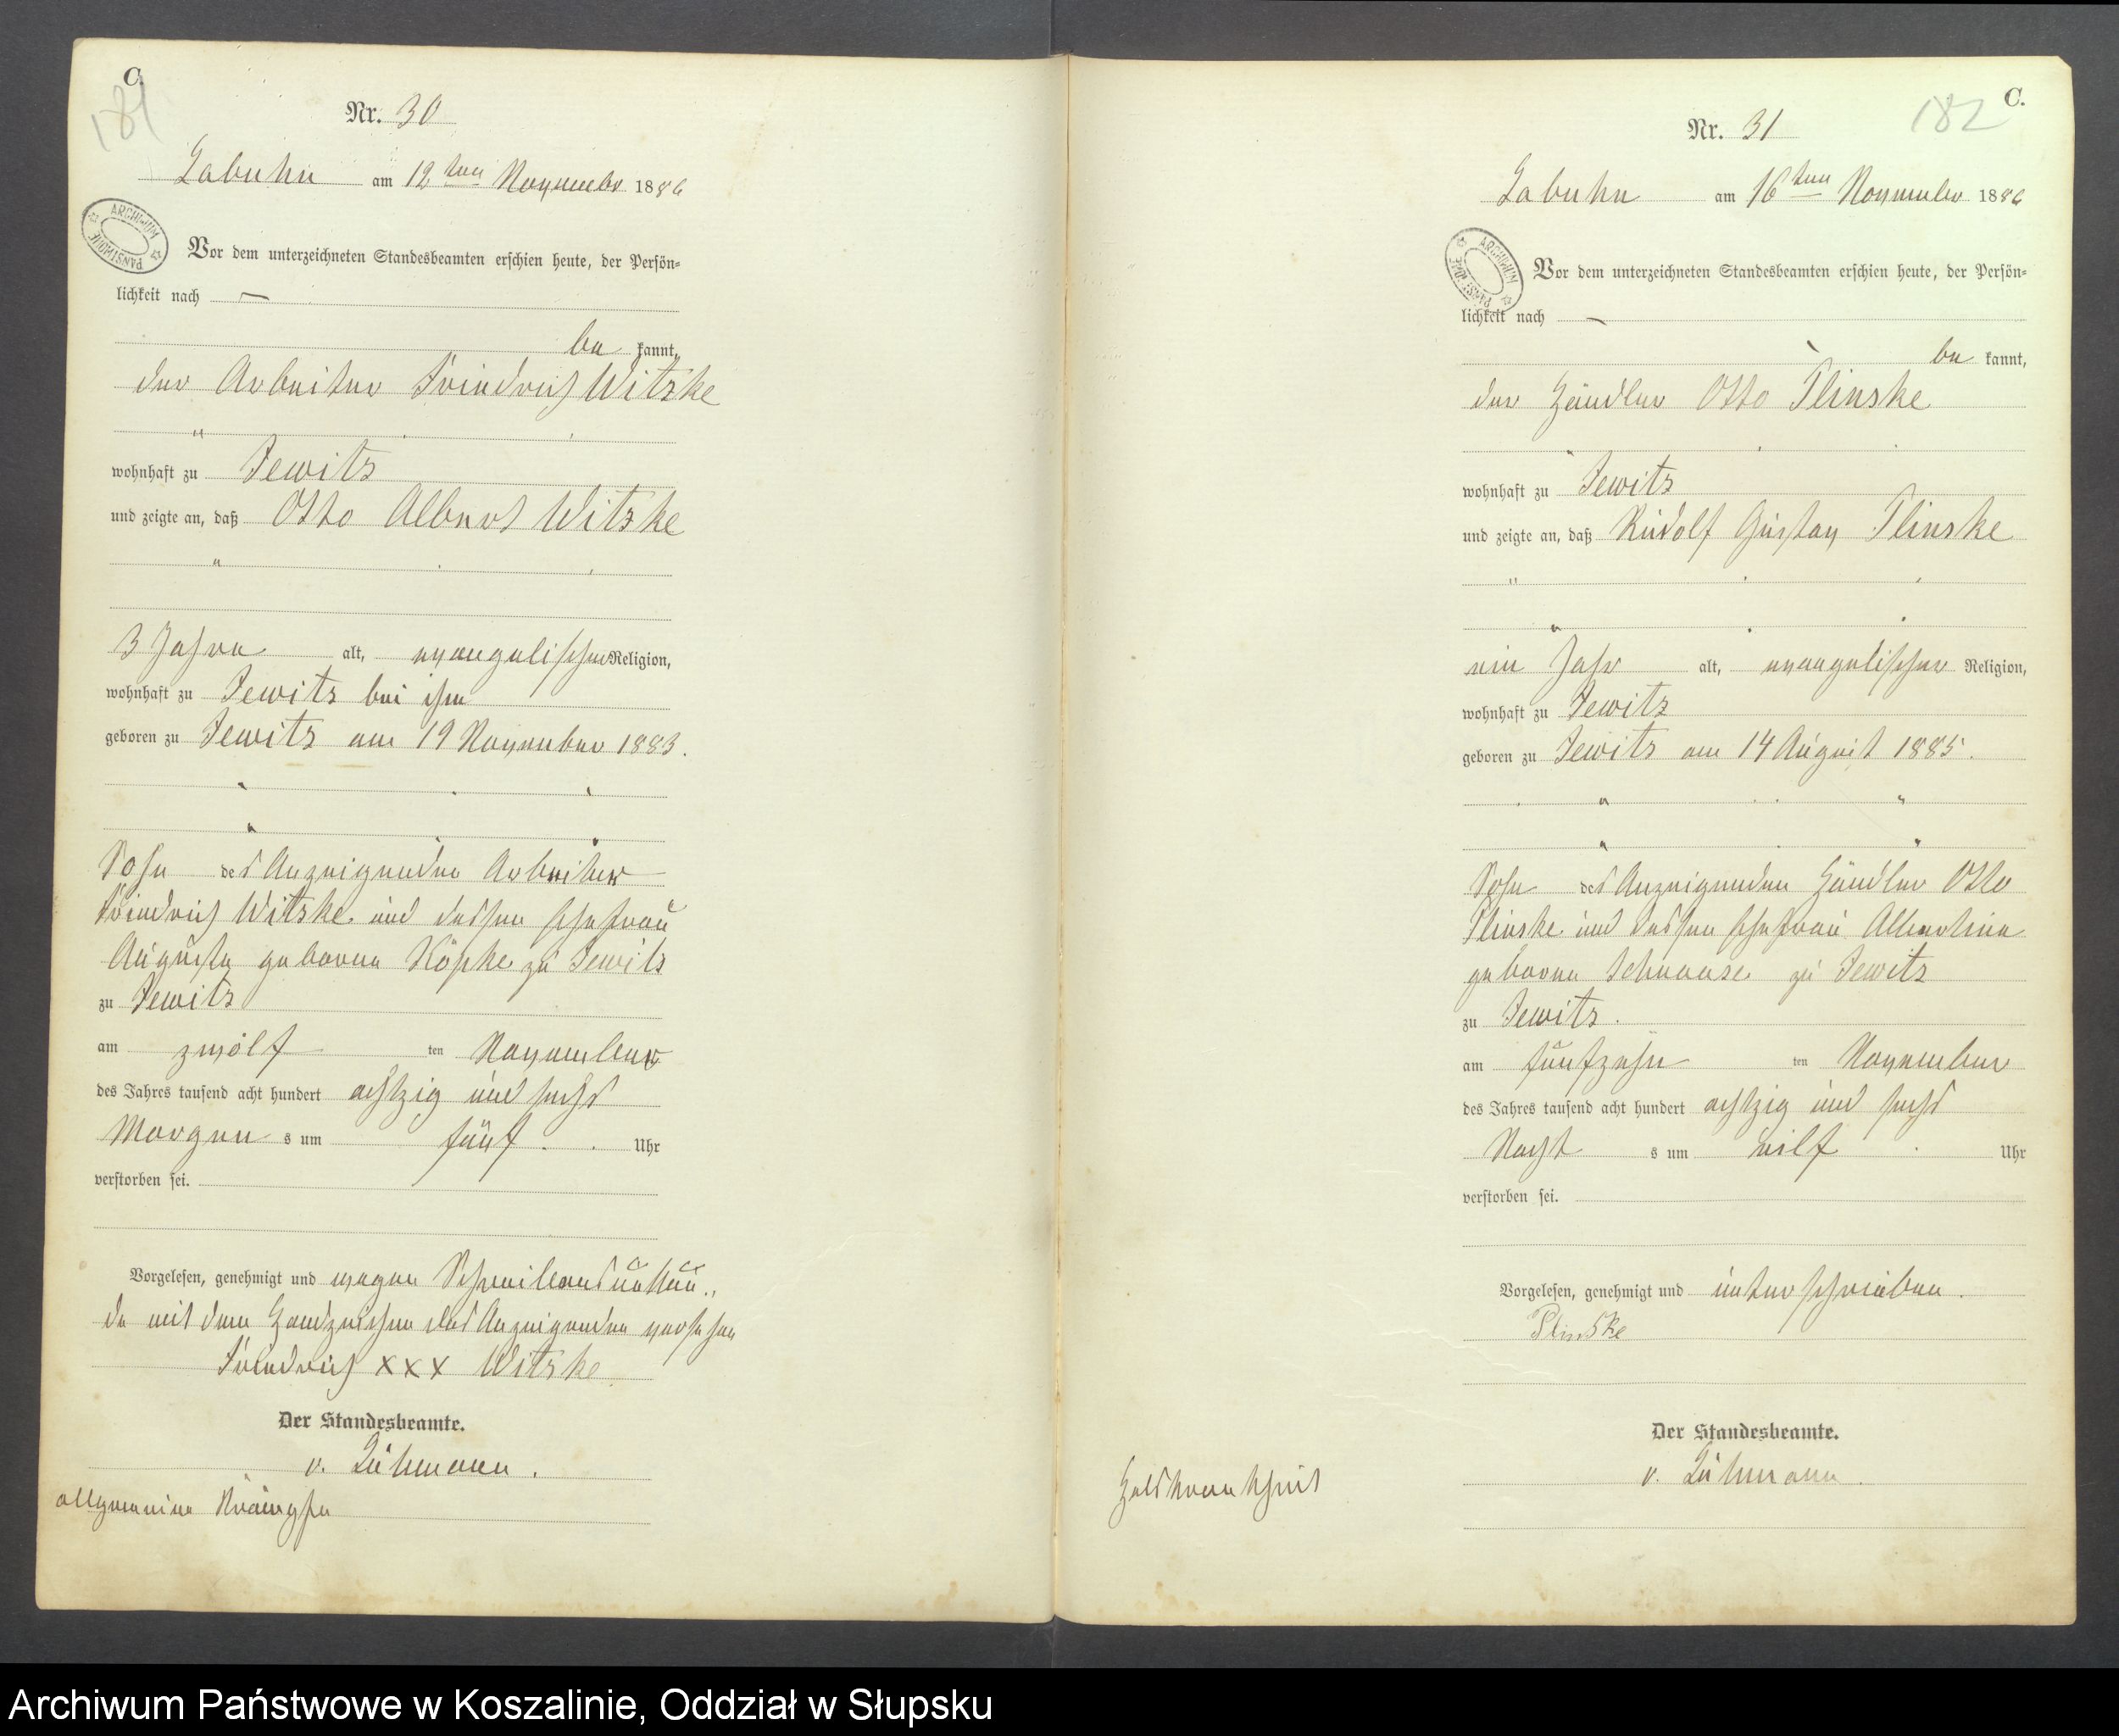 C.
181
Nr. 30
Labuhn am 12ten November 1886
ARCHIWUM PAŃSTWOWE
Vor dem unterzeichneten Standesbeamten erschien heute, der Persön=
lichkeit nach —
be kannt,
der Arbeiter Friedrich Witzke
wohnhaft zu Jewitz
und zeigte an, daß Otto Albert Witzke
3 Jahre alt, evangelischer Religion,
wohnhaft zu Jewitz bei ihm
geboren zu Jewitz am 19 November 1883.
Sohn des Anzeigenden Arbeiter
Friedrich Witzke und dessen Ehefrau
Auguste geborne Köpke zu Jewitz
zu Jewitz
am zwölf ten November
des Jahres tausend acht hundert achtzig und sechs
Morgen s um fünf Uhr
verstorben sei.
Vorgelesen, genehmigt und wegen Schreibens
da mit dem Handzeichen des Anzeigenden versehen
Friedrich xxx Witzke
Der Standesbeamte.
v. Lühmann.
allgemeine
C.
182
Nr. 31
Labuhn am 16ten November 1886
ARCHIWUM PAŃSTWOWE
Vor dem unterzeichneten Standesbeamten erschien heute, der Persön=
lichkeit nach —
be kannt,
der Händler Otto Plinske
wohnhaft zu Jewitz
und zeigte an, daß Rudolf Gustav Plinske
ein Jahr alt, evangelischer Religion,
wohnhaft zu Jewitz
geboren zu Jewitz am 14 August 1885.
Sohn des Anzeigenden Händler Otto
Plinske und dessen Ehefrau Albertine
geborne Schnaase zu Jewitz
zu Jewitz.
am fünfzehn ten November
des Jahres tausend acht hundert achtzig und sechs
Nacht s um eilf Uhr
verstorben sei.
Vorgelesen, genehmigt und unterschrieben.
Plinske
Der Standesbeamte.
v. Lühmann.
Halskrankheit
Archiwum Państwowe w Koszalinie, Oddział w Słupsku